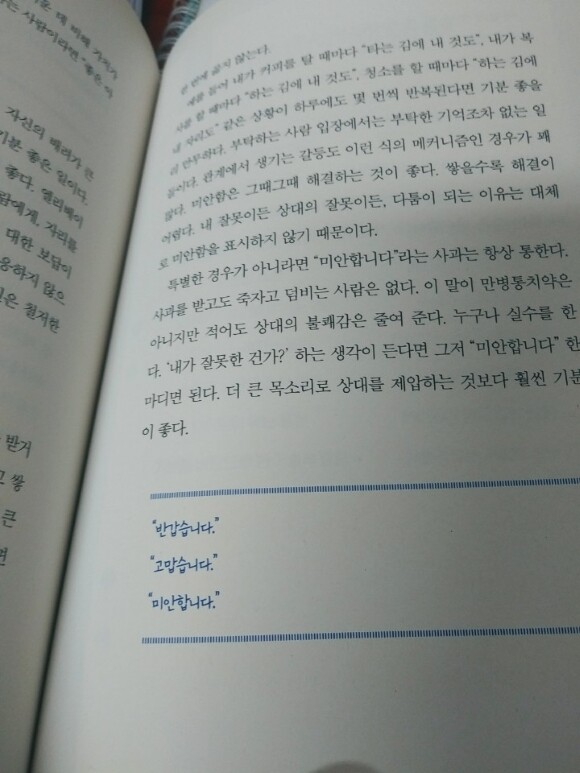 운 데 비해 가치가
사람이라면 “좋은 이
자신의 배려가 큰
기분 좋은 일이다.
좋다. 엘리베이
람에게, 자리를
대한 보답이
응하지 않은
은 철저한
받거
고 쌓
큰
면
한 번에 끓지 않는다.
예를 들어 내가 커피를 탈 때마다 “타는 김에 내 것도”, 내가 복
사를 할 때마다 “하는 김에 내 것도”, 청소를 할 때마다 “하는 김에
내 자리도” 같은 상황이 하루에도 몇 번씩 반복된다면 기분 좋을
리 만무하다. 부탁하는 사람 입장에서는 부탁한 기억조차 없는 일
들이다. 관계에서 생기는 갈등도 이런 식의 메커니즘인 경우가 꽤
많다. 미안함은 그때그때 해결하는 것이 좋다. 쌓을수록 해결이
어렵다. 내 잘못이든 상대의 잘못이든, 다툼이 되는 이유는 대체
로 미안함을 표시하지 않기 때문이다.
특별한 경우가 아니라면 “미안합니다”라는 사과는 항상 통한다.
사과를 받고도 죽자고 덤비는 사람은 없다. 이 말이 만병통치약은
아니지만 적어도 상대의 불쾌감은 줄여 준다. 누구나 실수를 한
다. ‘내가 잘못한 건가?’ 하는 생각이 든다면 그저 “미안합니다” 한
마디면 된다. 더 큰 목소리로 상대를 제압하는 것보다 훨씬 기분
이 좋다.
“반갑습니다.”
“고맙습니다.”
“미안합니다.”